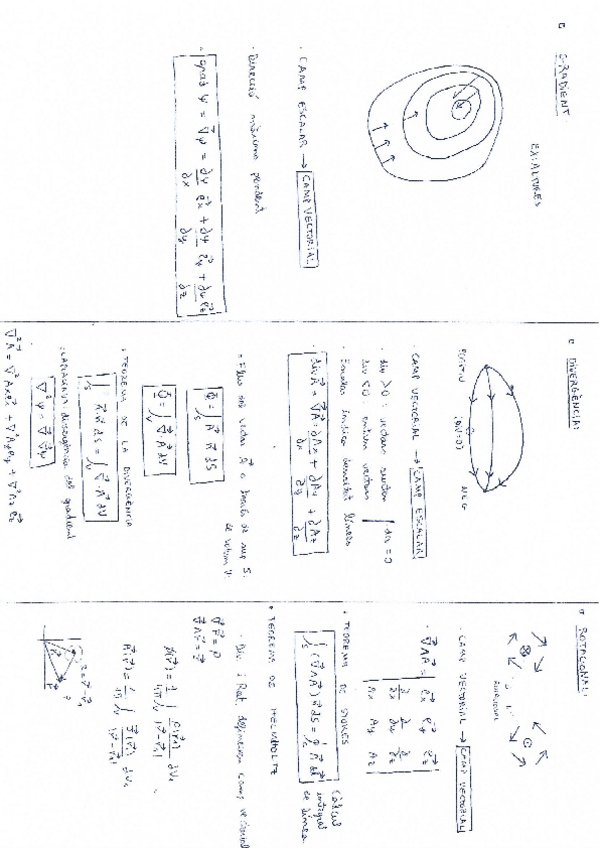 GRADIENT
EX: ALTURES
· CAMP ESCALAR → CAMP VECTORIAL
· Direcció màxima pendent
· grad ψ = ∇ψ = ∂ψ/∂x e⃗x + ∂ψ/∂y e⃗y + ∂ψ/∂z e⃗z
DIVERGÈNCIA:
POSITIU
(div=0)
NEG
· CAMP VECTORIAL → CAMP ESCALAR
· div >0 : vectors surten
div <0 entren vectors
div = 0
· Escalar indica densitat línies
· div A⃗ = ∇A⃗ = ∂Ax/∂x + ∂Ay/∂y + ∂Az/∂z
· Flux del vector A⃗ a través de sup S.
de volum V:
Φ = ∫s A⃗ n⃗ dS
Φ = ∫v ∇·A⃗ dV
· TEOREMA DE LA DIVERGÈNCIA
∫s A⃗ n⃗ dS = ∫v ∇·A⃗ dV
· LAPLACIANA divergència del gradient
∇²ψ = ∇·∇ψ
∇²A⃗ = ∇²Ax e⃗x + ∇²Ay e⃗y + ∇²Az e⃗z
ROTACIONAL:
· CAMP VECTORIAL → CAMP VECTORIAL
· ∇∧A⃗ = | e⃗x e⃗y e⃗z |
| ∂/∂x ∂/∂y ∂/∂z |
| Ax Ay Az |
· TEOREMA DE STOKES
∫s (∇∧A⃗) n⃗ dS = ∮c A⃗ dl⃗
Càlcul
integral
de línea
· TEOREMA DE HELMHOLTZ
· Div. i Rot. defineixen camp vectorial
∇F⃗ = ρ
∇∧F⃗ = J⃗